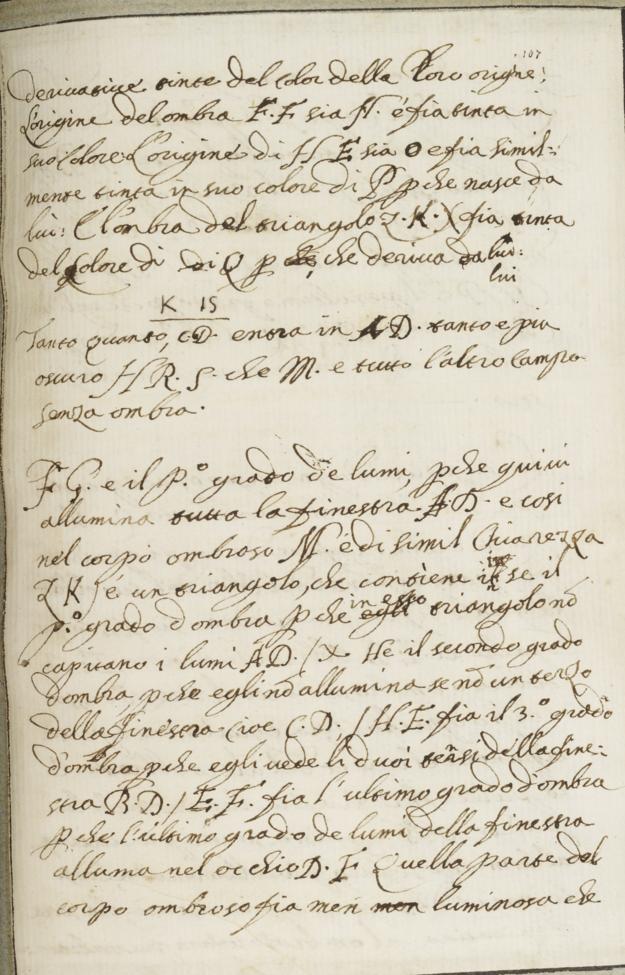 107
derivative tinte del color della loro origine;
L'origine del ombra E.F sia N. é fia tinta in
suo Colore L'origine di H E sia O e fia simil=
mente tinta in suo colore di P pche nasce da
lui: E l'ombra del triangolo Z.K.X fia tinta
del Colore di di Q p che che deriva da lui:
lui
K IS
Tanto quanto, C.D. entra in A D. tanto e piu
oscuro H R. S. che M. e tutto l'altro Campo
senza ombra.
F G. e il P.º grado de lumi, pche quivi
allumina tutta la finestra A D. e cosi
nel corpo ombroso M. é di simil Chiarezza
Z K / é un triangolo, che contiene in se il
p.º grado d'ombra p che in esso egli triangolo nō
capitano i lumi A D. / X He il secondo grado
d'ombra pche egli nō allumina se nō un terzo
della finestra Cioe C.D. / H.E. fia il 3.º grado
d'ombra pche egli vede li duoi tersi della fine=
stra B.D. / E.F. fia l'ultimo grado d'ombra
pche l'ultimo grado de lumi della finestra
alluma nel occhio D.F Quella parte del
corpo ombroso fia men men luminosa che